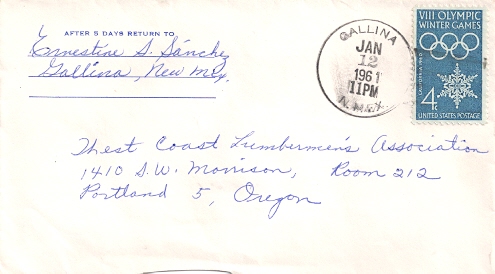 AFTER 5 DAYS RETURN TO
Ernestine S. Sánchez
Gallina, New Mex.
GALLINA
JAN
12
1961
11PM
N. MEX.
VIII OLYMPIC
WINTER GAMES
4¢
UNITED STATES POSTAGE
West Coast Lumbermen's Association
1410 S.W. Morrison, Room 212
Portland 5, Oregon